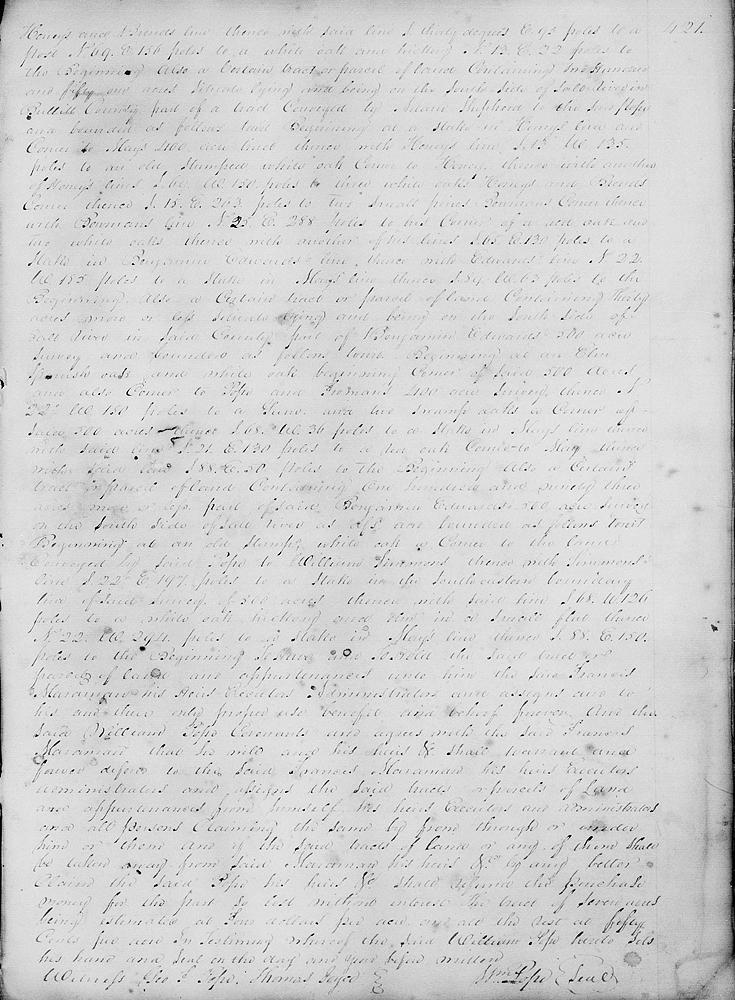 Henrys and Brends line thence with said line S. thirty degrees E. 95 poles to a 421.
post N. 69. E. 156 poles to a white oak and hickory N. 13. E. 22 poles to
the Beginning Also a Certain tract or parcel of land Containing two hundred
and fifty one acres Situate lying and being on the South Side of Salt River in
Bullitt County part of a tract Conveyed by Adam Shepherd to the said Pope
and bounded as follows towit Beginning at a Stake in Henrys line and
Corner to Mays 400 acre tract thence with Henrys line S. 15. W. 135.
poles to an old Stamped white oak Corner to Henry, thence with another
of Henrys lines S. 60. W. 130 poles to three white oaks Henrys and Brends
Corner thence S. 15. E. 263 poles to two Small pines Bowmans Corner thence
with Bowmans line N. 25. E. 288 poles to his Corner of a red oak and
two white oaks thence with another of his lines S. 65. E. 130 poles to a
Stake in Benjamin Edwards line thence with Edwards line N. 22.
W. 185 poles to a Stake in Mays line thence S. 89. W. 63 poles to the
Beginning. Also a Certain tract or parcel of land Containing thirty
acres more or less Situate lying and being on the South Side of
Salt River in Said County part of Benjamin Edwards 500 acre
Survey and bounded as follows towit Beginning at an Elm
Spanish oak and white oak beginning Corner of Said 500 Acres
and also Corner to Pope and Fromans 400 acre Survey, thence N
22° W. 180 poles to a Gum and two Swamp oaks a Corner of
Said 500 acres thence S. 68. W. 36 poles to a Stake in Mays line thence
with Said line S. 21. E. 130 poles to a red oak Corner to May thence
with Said line S. 88. E. 50 poles to the Beginning Also a Certain
tract or parcel of land Containing One hundred and ninety three
acres more or less part of Said Benjamin Edwards 500 acre Survey
on the South Side of Salt River as afs. and bounded as follows towit
Beginning at an old Stamped white oak a Corner to the land
Conveyed by Said Pope to William Simmons thence with Simmons's
line S. 22. E. 197. poles to a Stake in the Southeastern boundary
line of Said Survey of 500 acres thence with Said line S. 68. W. 126
poles to a white oak hickory and Elm in a Small flat thence
N. 22. W. 294. poles to a Stake in Mays line thence S. 88. E. 150.
poles to the Beginning To have and to hold the Said tract or
parcel of land and appurtenances unto him the Said Francis
Maraman his Heirs Executors Administrators and assigns and to
his and their only proper use benefit and behoof forever. And the
Said William Pope Covenants and agrees with the Said Francis
Maraman that he will and his heirs &c Shall warrant and
forever defend to the Said Francis Maraman his heirs Executors
administrators and assigns the Said tracts or parcels of Land
and appurtenances from himself his heirs Executors and administrators
and all persons Claiming the Same by from through or under
him or them And if the Said tracts of land or any of them Shall
be taken away from Said Maraman his heirs &c. by any better
Claim the Said Pope his heirs &c Shall refund the purchase
money for the part So lost without interest the tract of Seven acres
being estimated at four dollars per acre and all the rest at fifty
Cents per acre In Testimony whereof the Said William Pope hereto Sets
his hand and Seal on the day and year before written
Witness Geo. F. Pope. Thomas Joyce } Wm. Pope (Seal)